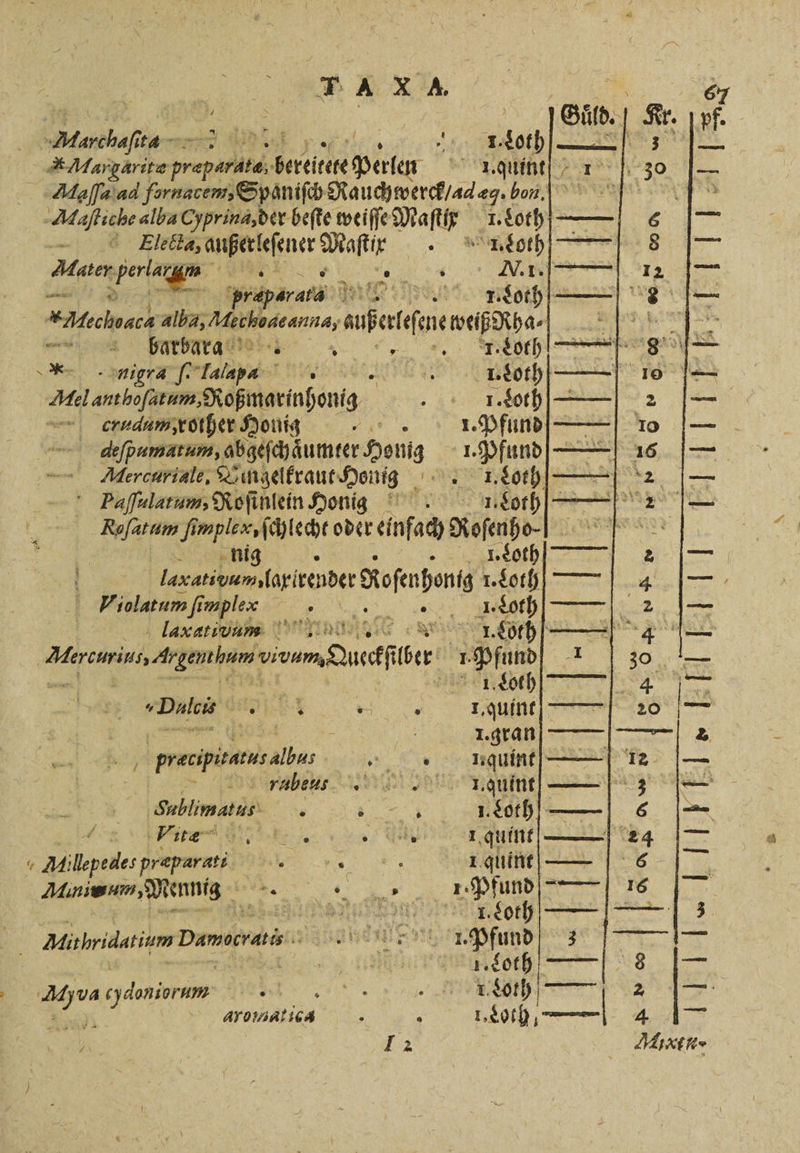 TAXA. 67
Gůld. Kr. pf.
Marchasita . . . . . 1.Loth —— 3 —
*Margaritæ præparatæ, bereitete Perlen 1.quint 1 30 —
Massa ad fornacem, Spanisch Rauchwerck/ad æq. bon.
Mastiche alba Cyprina, der beste weisse Mastix 1.Loth —— 6 —
Electa, außerlesener Mastix . . 1.Loth —— 8 —
Mater perlarum . . . . N.1. —— 12 —
præparata . . 1.Loth —— 8 —
*Mechoaca alba, Mechoacanna, außerlesene weiß Rha-
barbara . . . . 1.Loth —— 8 —
* - nigra s. Ialapa . . . 1.Loth —— 10 —
Mel anthosatum, Roßmarinhonig . 1.Loth —— 2 —
crudum, rother Honig . . 1.Pfund —— 10 —
despumatum, abgeschäumter Honig 1.Pfund —— 16 —
Mercuriale, Bingelkraut Honig . 1.Loth —— 2 —
Passulatum, Rosinlein Honig . 1.Loth —— 2 —
Rosatum simplex, schlecht oder einfach Rosenho-
nig . . . 1.Loth —— 2 —
laxativum, laxirender Rosenhonig 1.Loth —— 4 —
Violatum simplex . . . 1.Loth —— 2 —
laxativum . . . 1.Loth —— 4 —
Mercurius, Argenthum vivum, Quecksilber 1.Pfund 1 30 —
1.Loth —— 4 —
Dulcis . . . . 1.quint —— 20 —
1.gran —— —— 2
præcipitatus albus . . 1.quint —— 12 —
rubeus . . 1.quint —— 3 —
Sublimatus . . . 1.Loth —— 6 —
Vitæ . . . . 1.quint —— 24 —
Millepedes præparati . . . 1 quint —— 6 —
Minimum, Mennig . . . 1.Pfund —— 16 —
1.Loth —— —— 3
Mithridatium Damocratis . . 1.Pfund 3 —— —
1.Loth —— 8 —
Myva cydoniorum . . . . 1.Loth —— 2 —
aromatica . . 1.Loth, —— 4 —
I 2 Mixtu-